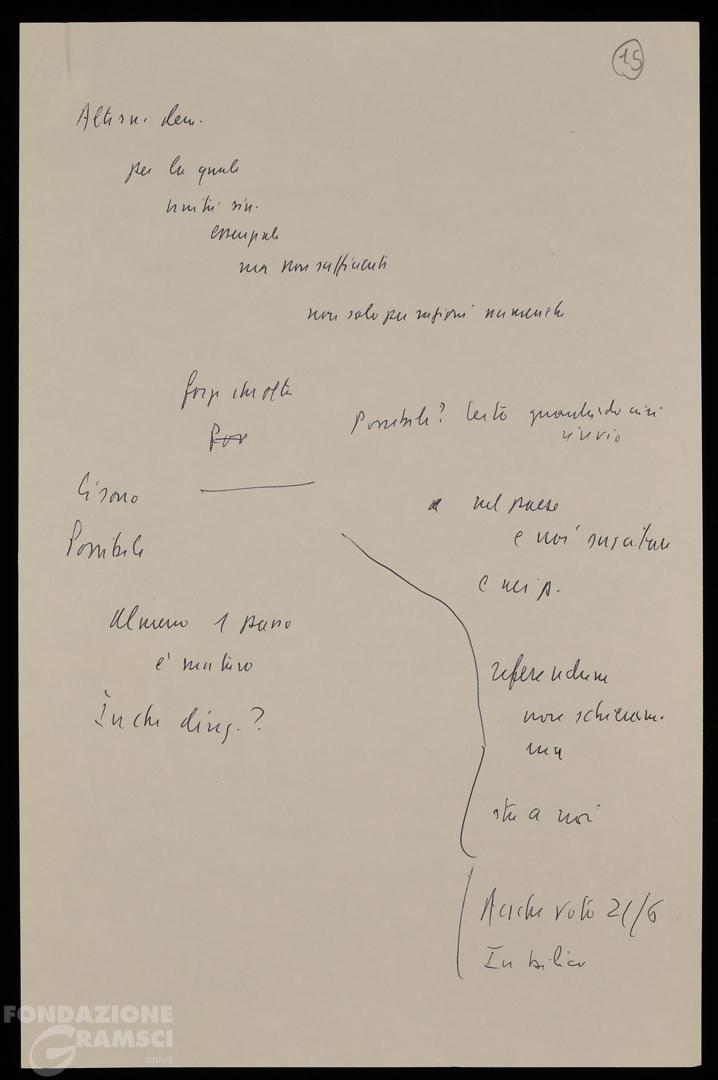 15
Altern. dem.
per la quale
unità sin.
essenziale
ma non sufficiente
non solo per ragioni numeriche
forze molte
Por
Possibile? Certo quando
rinvio
Ci sono
Possibile
nel paese
e noi suscitare
e nei p.
Almeno 1 passo
è maturo
In che direz.?
referendum
non schieram.
ma
sta a noi
Anche voto 21/6
In bilico
FONDAZIONE
GRAMSCI
onlus